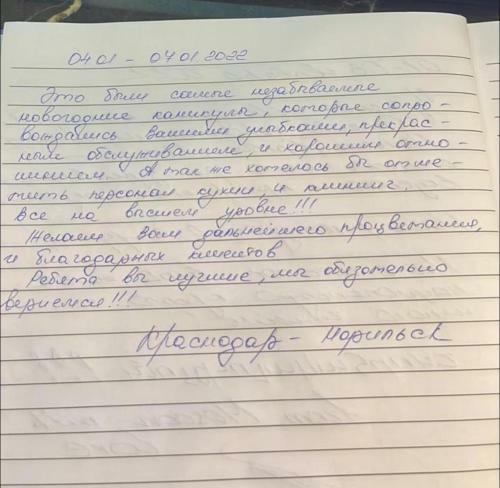 04 01 - 07 01 2022
Это были самые незабываемые
новогодние каникулы, которые сопро-
вождались вашими улыбками, прекрас-
ным обслуживанием, и хорошим отно-
шением. А так же хотелось бы отме-
тить персонал кухни, и клининг.
Все на высшем уровне!!!
Желаем Вам дальнейшего процветания,
и благодарных клиентов
Ребята вы лучшие, мы обязательно
вернемся!!!
Краснодар - Норильск